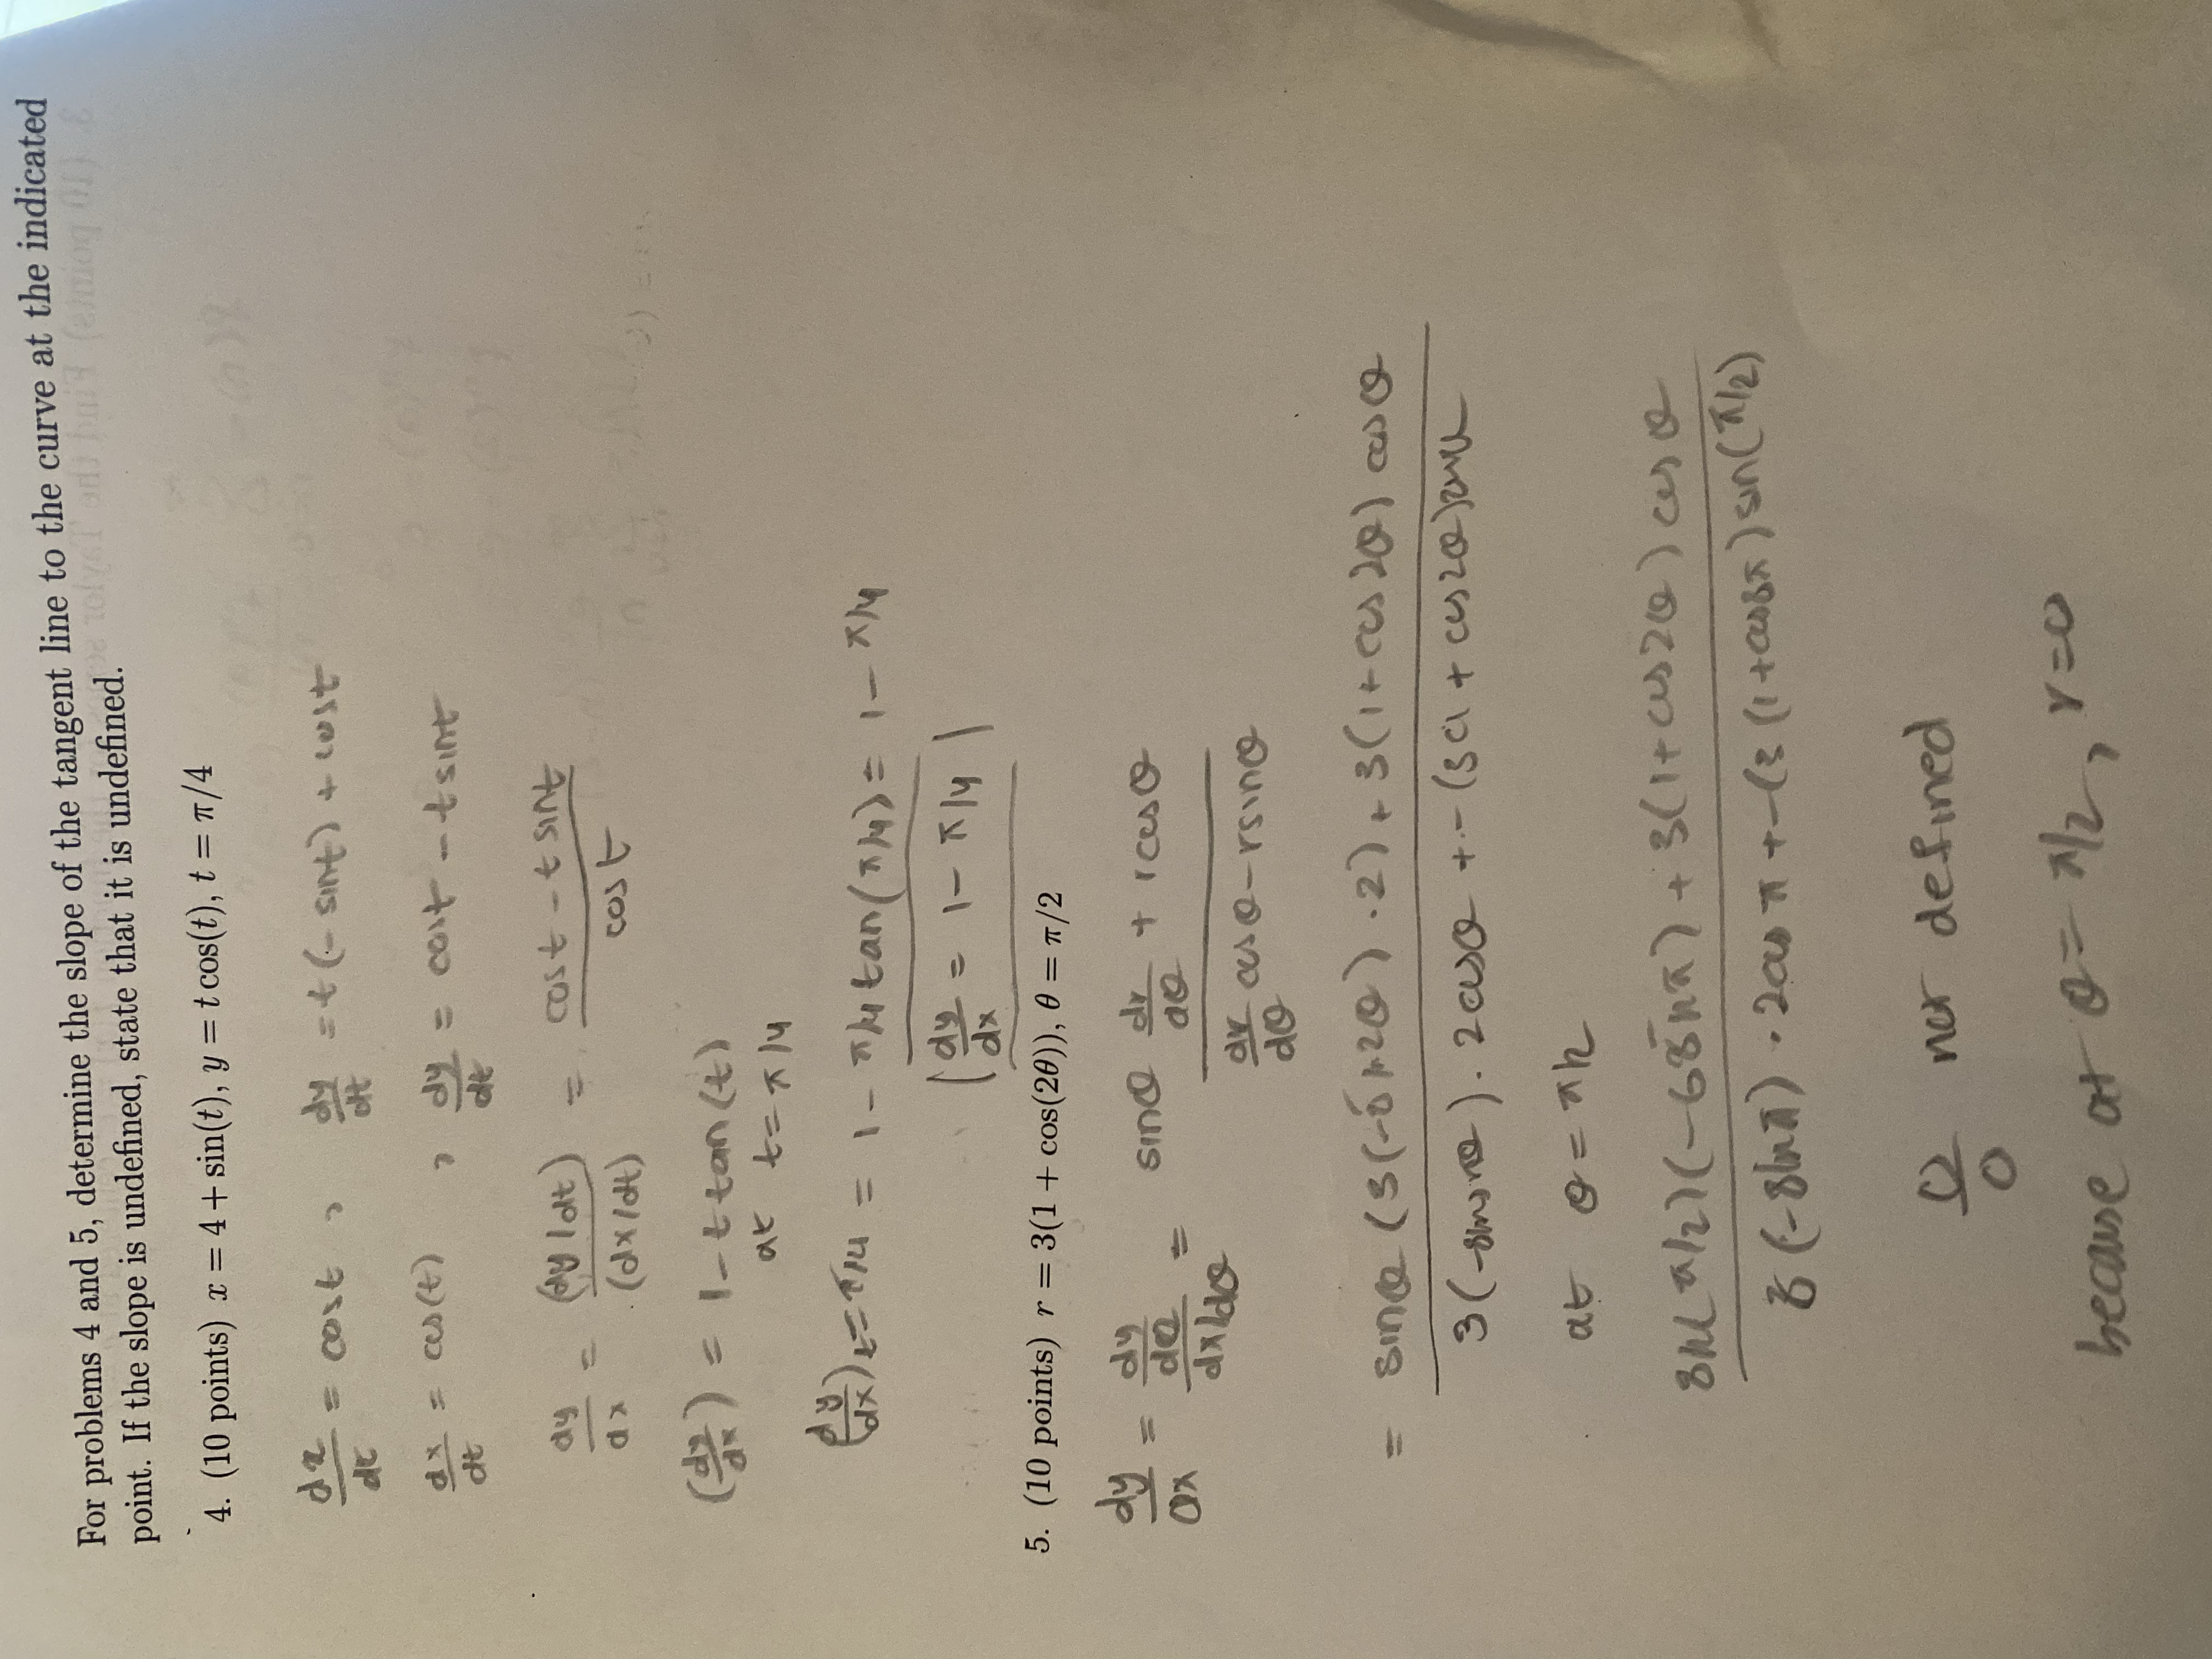 For problems 4 and 5, determine the slope of the tangent line to the curve at the indicated
point. If the slope is undefined, state that it is undefined.
4. (10 points) x = 4 + sin(t), y = t cos(t), t = π/4
dx/dt = cost , dy/dt = t(-sint) + cost
dx/dt = cos(t) , dy/dt = cost - tsint
dy/dx = (dy/dt)/(dx/dt) = (cost - tsint)/cost
(dy/dx) = 1 - t tan(t)
at t = π/4
(dy/dx) t=π/4 = 1 - π/4 tan(π/4) = 1 - π/4
dy/dx = 1 - π/4
5. (10 points) r = 3(1 + cos(2θ)), θ = π/2
dy/dx = (dy/dθ)/(dx/dθ) = (sinθ dr/dθ + rcosθ)/(dr/dθ cosθ - rsinθ)
= sinθ (3(-sin2θ)·2) + 3(1+cos2θ) cosθ
at θ = π/2
sin(π/2)(-6sinπ) + 3(1+cos2θ) cosθ
0/0 not defined
because at θ = π/2, r=0